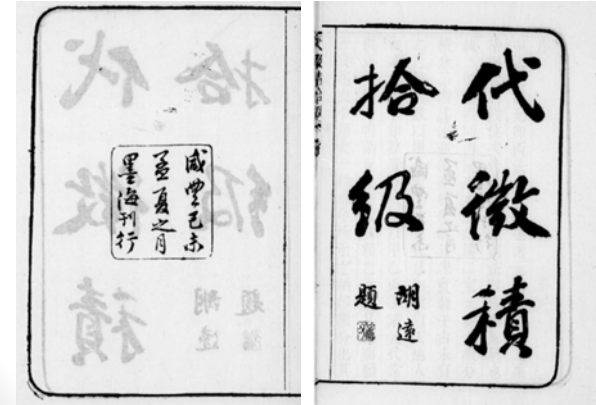 代微積
拾級
胡遠
題
咸豐己未
孟夏之月
墨海刊行